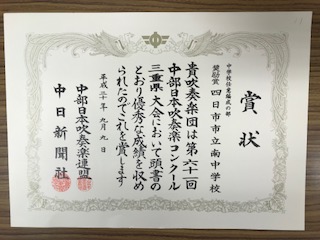 賞状
中学校任意編成の部
奨励賞 四日市市立南中学校
貴吹奏楽団は第六十一回
中部日本吹奏楽コンクール
三重県大会において頭書の
とおり優秀な成績を収め
られたのでこれを賞します
平成三十年九月九日
中部日本吹奏楽連盟
中日新聞社